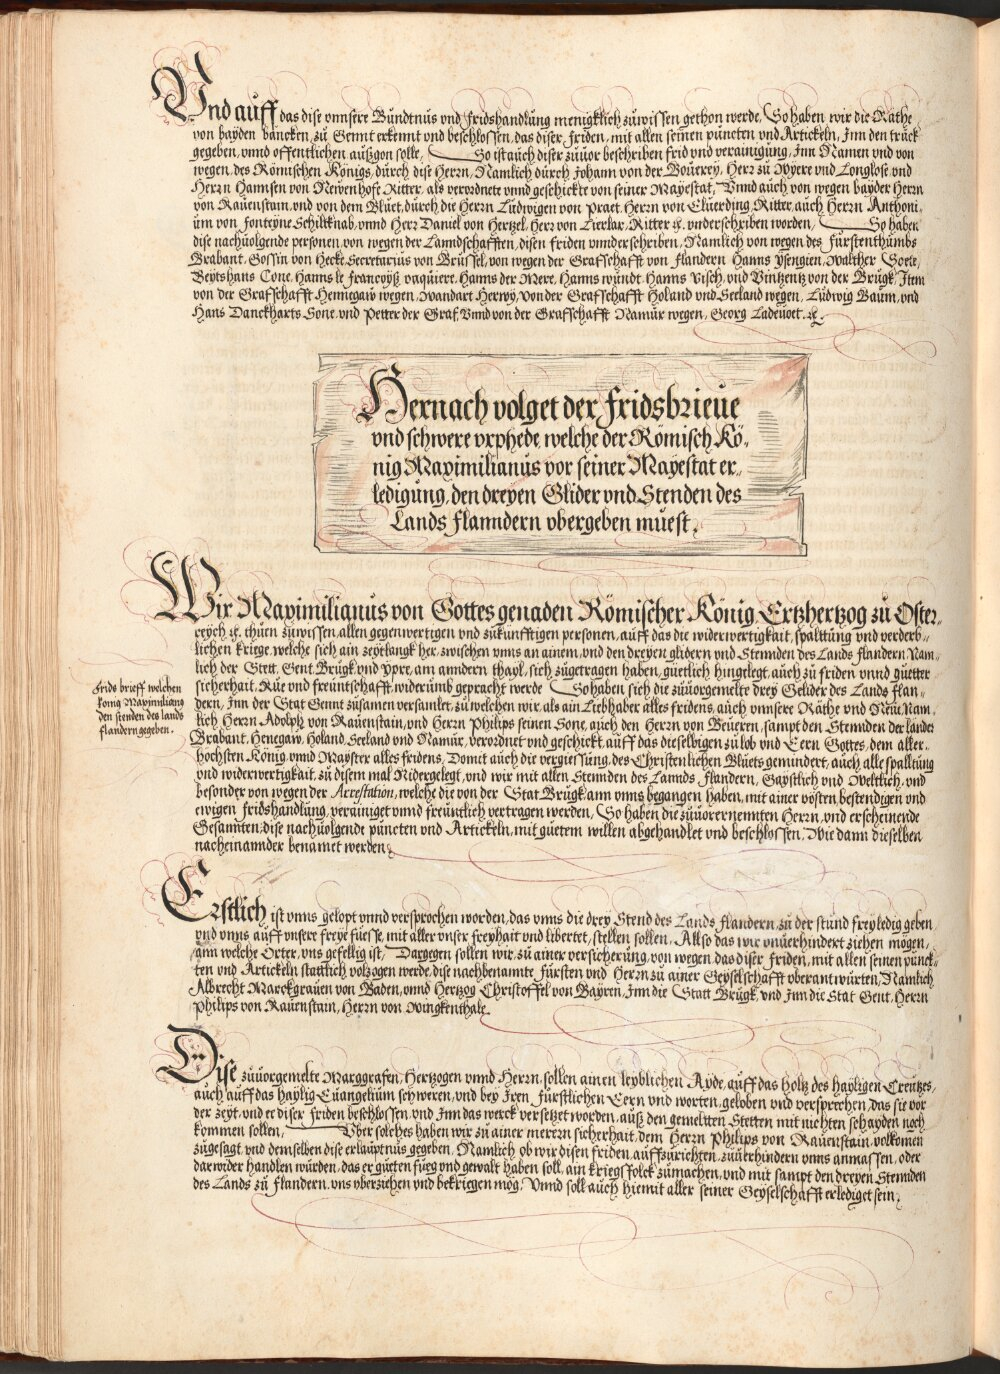 Und auff das dise unnsere Bündtnüs und fridshandlung menigklich zuwissen gethon werde, So haben wir die Räthe
von bayden bäncken, zu Gennt erkennt und beschlossen, das diser friden, mit allen seinen püncten und Artickeln, Inn den truck
gegeben, unnd offentlichen außgon solle, So ist auch diser züvor beschriben frid und verainigung, Inn Namen und von
wegen, des Römischen Königs, dürch dise Herrn, Namlich dürch Johann von der Boüerey, Herr zu Wyere und Longlose und
Herrn Hannsen von Neiwenhofe Ritter, als verordnete unnd geschickte von seiner Mayestat, Unnd auch von wegen bayder Herrn
von Rauenstain, und von dem Blüet, dürch die Herrn Lüdwigen von Praet, Herrn von Elüerding, Ritter, auch Herrn Anthoni
üm von fonteyne Schiltknab, unnd Herr Daniel von Hertzel, Herr von Lierlar, Ritter ꝛc. underschriben worden, So haben
dise nachuolgende personen, von wegen der Lanndschafften, disen friden unnderschriben, Namlich von wegen des Fürstenthumbs
Brabant, Gossin von Hecke, Secretarius von Brüssel, von wegen der Grafschafft von Flandern Hanns ysengien, Walther Goete,
Beytshans Cone, Hanns le Francoyß, vaquiere, Hanns der Mere, Hanns wündt, Hanns Visch, und Vintzentz von der Brügk, Item
von der Grafschafft Hennegaw wegen, Wandart Herwy, von der Grafschafft Holand und Seeland wegen, Lüdwig Baum, und
Hans Danckharts Sone, und Petter der Graf, Unnd von der Grafschafft Namür wegen, Georg Ladeuoet. ꝛc.
Hernach volget der fridsbrieue
und schwere vrphede, welche der Römisch Kö-
nig Maximilianus vor seiner Mayestat er-
ledigung, den dreyen Glider und Stenden des
Lands Flanndern übergeben müest.
Wir Maximilianus von Gottes genaden Römischer König Ertzhertzog zu Öster-
reych ꝛc. thüen zuwissen, allen gegenwertigen und zukünfftigen personen, auff das die widerwertigkait, spalttung und verderb-
lichen kriege, welche sich ain zeytlangk her, zwischen unns an ainem, und den dreyen glidern und Stennden des Lands Flandern Nam-
lich der Stett, Gent, Brügk und Ypre, am anndern thayl, sich zügetragen haben, güetlich hingelegt, auch zu friden unnd güetter
sicherhait, Rüe und freüntschafft, widerümb gepracht werde So haben sich die züuorgemelte drey Gelider des Lands Flan-
dern, Inn der Stat Gennt züsamen versamlet, zu welchen wir, als ain Liebhaber alles fridens, auch unnsere Räthe und Neüe, Nam-
lich Herrn Adolph von Rauenstain, und Herrn Philips seinen Sone, auch den Herrn von Beueren, sampt den Stennden der länder
Brabant, Henegaw, Holand, Seeland und Namür, verordnet und geschickt, auff das dieselbigen zu lob und Eern Gottes, dem aller-
höchsten König, unnd Mayster alles fridens, Domit auch die vergiessüng, des Christenlichen Blüets gemindert, auch alle spalltüng
und widerwertigkait, zu disem mal Nidergelegt, und wir mit allen Stennden des Lannds, Flandern, Gaystlich und Weltlich, und
besonder von wegen der Arrestation, welche die von der Stat Brügk ann unns begangen haben, mit ainer vösten, bestendigen und
ewigen fridshandlung, verainiget unnd freüntlich vertragen werden, So haben die züuorernennten Herrn, und erscheinende
Gesannten, dise nachuolgende püncten und Artickeln, mit güetem willen abgehandlet und beschlossen, Wie dann dieselben
nacheinannder benamet werden.
frids brieff welchen
könig Maximilianus
den stenden des lands
flandern gegeben.
Erstlich ist unns gelopt unnd versprochen worden, das unns die drey Stend des Lands Flandern, zu der stünd frey ledig geben,
und unns auff unsere freye füesse, mit aller unser freyhait und libertet, stellen sollen, Allso das wir onuerhindert ziehen mögen,
ann welche örter, uns gefellig ist, Dargegen sollen wir, zu ainer versicherung, von wegen das diser friden, mit allen seinen punck-
ten und Artickeln stattlich volzogen werde, die nachbenannte Fürsten und Herrn, zu ainer Geyselschafft überantwürten, Namlich
Albrecht Marckgrauen von Baden, unnd Hertzog Christoffel von Bayren, Inn die Statt Brügk, und Inn die Stat Gent, Herrn
Philips von Rauenstain, Herrn von Wingkenthale.
Dise züuorgemelte Marggrafen, Hertzogen unnd Herrn, sollen ainen leyblichen Ayde, auff das holtz des hayligen Creutzes,
auch auff das haylig Euangelium schweren, und bey Iren Fürstlichen Eern und worten, geloben und versprechen, das sie vor
der zeyt, und er diser friden beschlossen, und Inn das werck versetzet worden, auß den gemeltten Stetten mit nichten schayden noch
kommen sollen, Uber solches haben wir zu ainer merern sicherhait, dem Herrn Philips von Rauenstain, volkomen
zügesagt, und demselben dise erlaupnus gegeben, Namlich ob wir disen friden, auffzürichten, züuerhindern unns anmassen, oder
darwider handlen würden, das er güeten füeg und gewalt haben soll, ain kriegsfolck zümachen, und mit sampt den dreyen Stennden
des Lands zu Flandern, uns überziehen und bekriegen mög, Unnd soll auch hiemit aller seiner Geyselschafft erlediget sein.